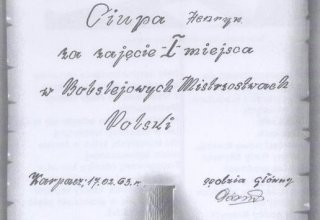 Ciupa Henryk
za zajęcie I miejsca
w Bobslejowych Mistrzostwach
Polski
Karpacz, 17.02.63.r. sędzia główny